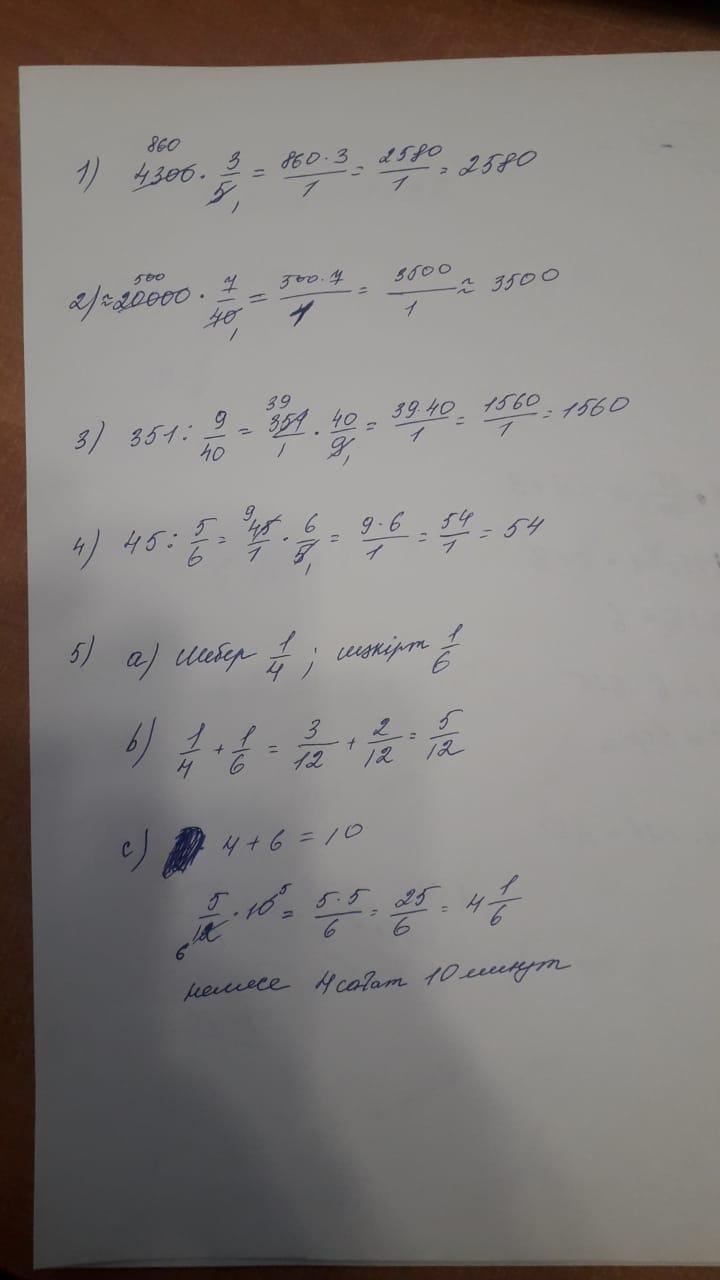 1) 4300 · 3/5 = 860·3/1 = 2580/1 = 2580
2) ≈20000 · 7/40 = 500·7/1 = 3500/1 ≈ 3500
3) 351 : 9/40 = 351/1 · 40/9 = 39·40/1 = 1560/1 = 1560
4) 45 : 5/6 = 45/1 · 6/5 = 9·6/1 = 54/1 = 54
5) a) шебер 1/4 ; шәкірт 1/6
b) 1/4 + 1/6 = 3/12 + 2/12 = 5/12
c) 4 + 6 = 10
5/12 · 10 = 5·5/6 = 25/6 = 4 1/6
немесе 4 сағат 10 минут